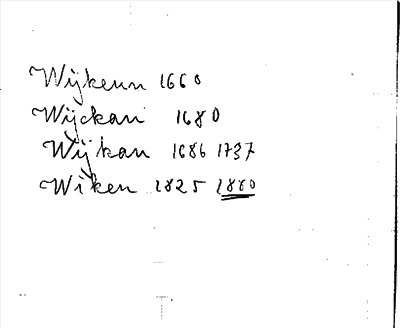 Wijkeun 1660
Wijckan 1680
Wijkan 1686 1737
Wiken 1825 1880